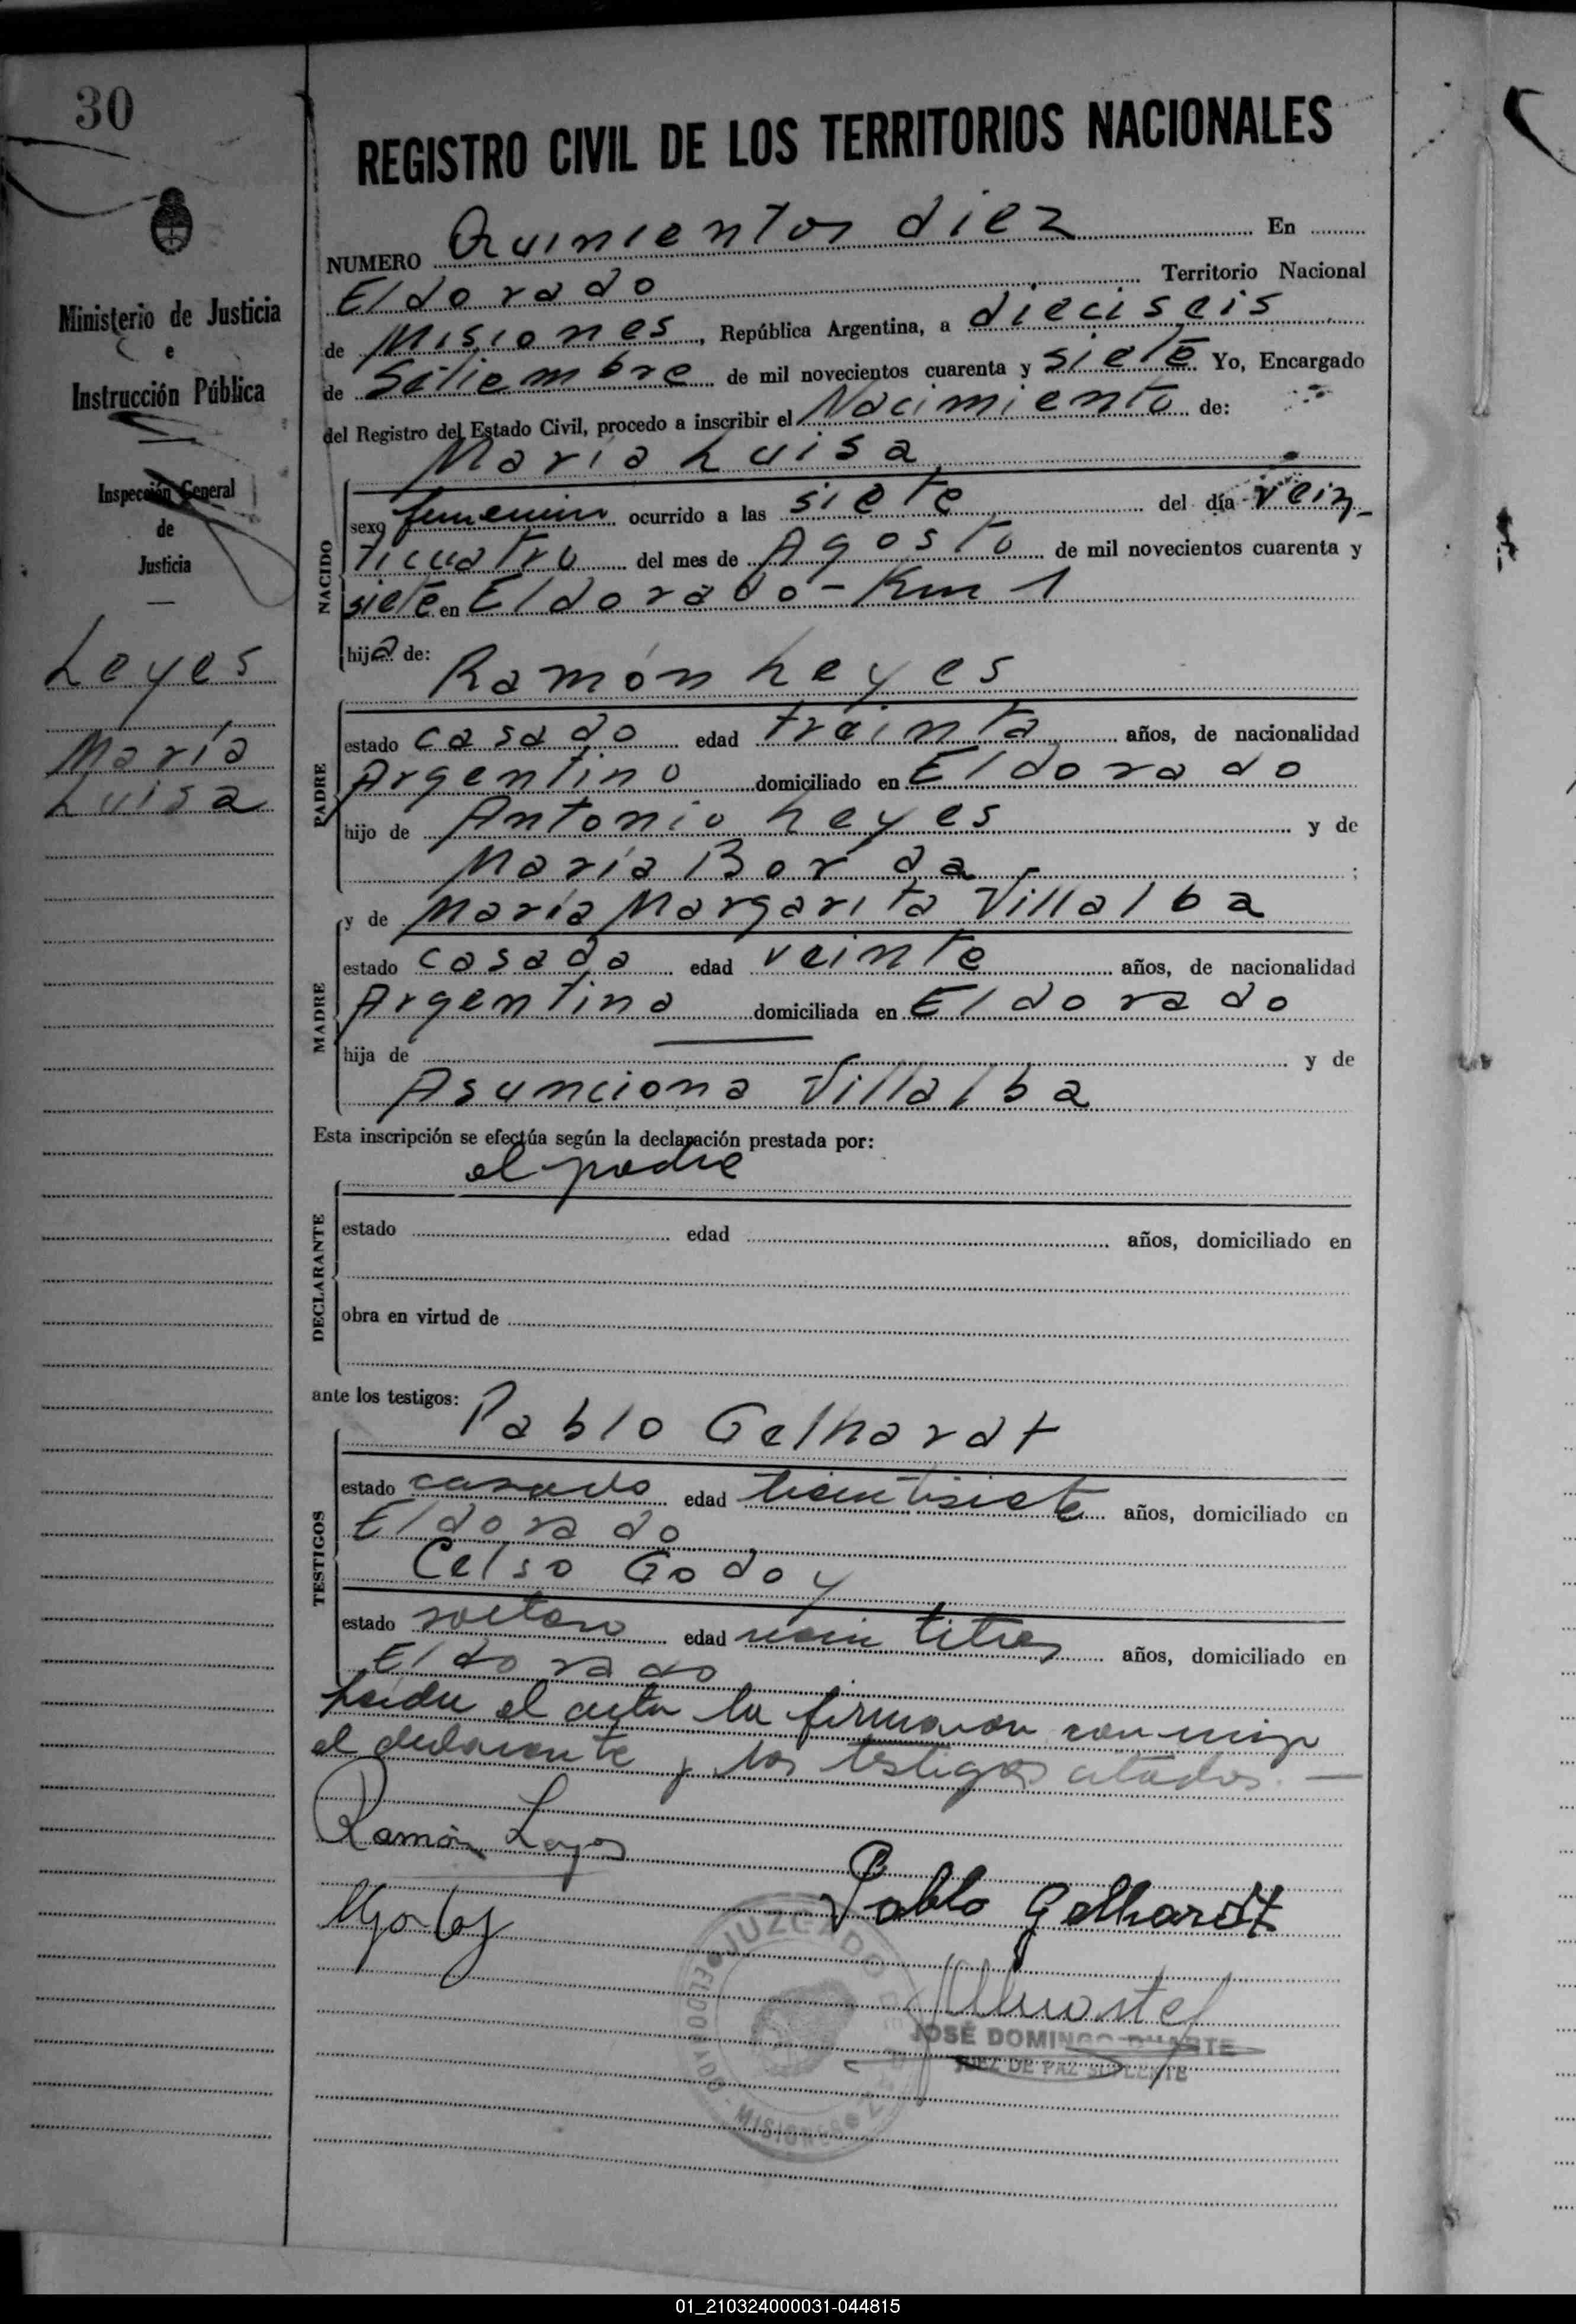 30
Ministerio de Justicia
e
Instrucción Pública
Inspección General
de
Justicia
Leyes
María
Luisa
REGISTRO CIVIL DE LOS TERRITORIOS NACIONALES
NUMERO Quinientos diez En
Eldorado Territorio Nacional
de Misiones, República Argentina, a dieciseis
de Setiembre de mil novecientos cuarenta y siete Yo, Encargado
del Registro del Estado Civil, procedo a inscribir el Nacimiento de:
María Luisa
NACIDO
sexo femenino ocurrido a las siete del día vein
ticuatro del mes de Agosto de mil novecientos cuarenta y
siete en Eldorado - Km 1
hija de:
Ramón Leyes
PADRE
estado casado edad treinta años, de nacionalidad
Argentino domiciliado en Eldorado
hijo de Antonio Leyes y de
María Borda ;
y de María Margarita Villalba
MADRE
estado casada edad veinte años, de nacionalidad
Argentina domiciliada en Eldorado
hija de y de
Asunciona Villalba
Esta inscripción se efectúa según la declaración prestada por:
el padre
DECLARANTE
estado edad años, domiciliado en
obra en virtud de
ante los testigos:
Pablo Gelhardt
TESTIGOS
estado casado edad treintisiete años, domiciliado en
Eldorado
Celso Godoy
estado soltero edad veintitres años, domiciliado en
Eldorado
Leída el acta la firmaron conmigo
el declarante y los testigos citados. —
Ramón Leyes
Pablo Gelhardt
JUZGADO DE PAZ
ELDORADO - MISIONES
JOSÉ DOMINGO DUARTE
JUEZ DE PAZ SUPLENTE
01_210324000031-044815